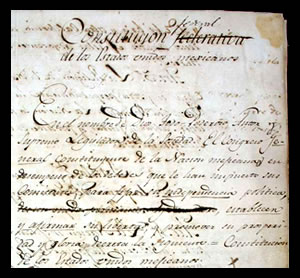 federal
Constitucion federativa
de los Estados unidos mexicanos
En el nombre de Dios
Supremo Legislador de la Sociedad. El Congreso Ge
neral Constituyente de la Nacion mexicana, en
desempeño de los deberes que le han impuesto sus
Comitentes, para fijar su Independencia politica,
establecer
y afirmar su libertad, y promover su prosperi
dad y gloria, decreta la siguiente = Constitucion
de los Estados unidos mexicanos.